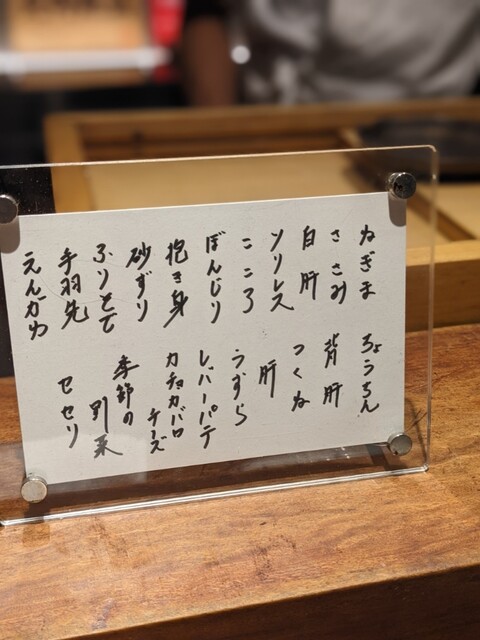 ねぎま
ささみ
白肝
ソリレス
こころ
ぼんじり
抱き身
砂ずり
ふりそで
手羽先
えんがわ
ちょうちん
背肝
つくね
肝
うずら
レバーパテ
カチョカバロ
チーズ
季節の
野菜
セセリ